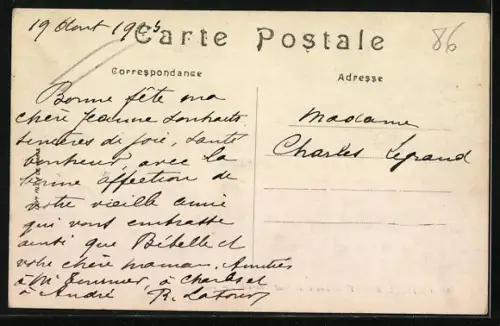 19 Aout 19
86
Carte Postale
Correspondance
Adresse
Bonne fête ma
chère Jeanne Souhaits
sincères de joie, santé
bonheur, avec la
bonne affection de
votre vieille amie
qui vous embrasse
ainsi que Bébelle et
votre chère maman. Amitiés
à Mr, à Charles et
à André R. Latour
Madame
Charles Legrand